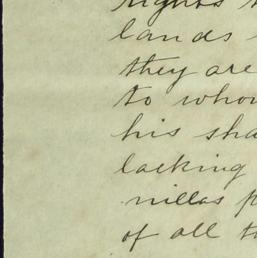 rights
lands
they are
to whom
his sha
lacking
nillas p
of all th